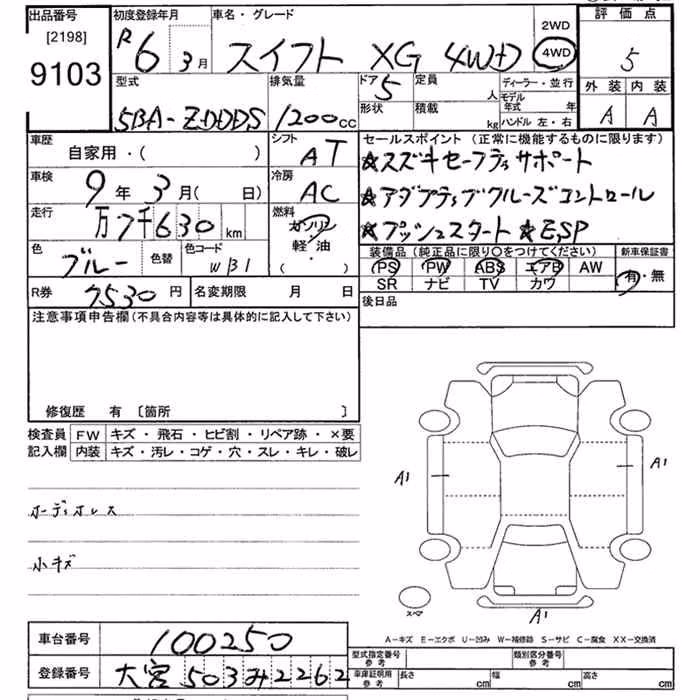 出品番号
[2198]
9103
初度登録年月
R6 3月
車名・グレード
スイフト XG 4WD
2WD
4WD
評価点
5
外装 内装
A A
型式
5BA-ZDDDS
排気量
1200cc
ドア 5
形状
定員 人
積載 kg
ディーラー・並行
モデル年式 年
ハンドル 左・右
車歴
自家用・( )
シフト
AT
車検
9年 3月( 日)
冷房
AC
走行
万7千630km
燃料
ガソリン
軽・油
( ・ )
色
ブルー
色替
色コード
WB1
セールスポイント (正常に機能するものに限ります)
★スズキセーフティサポート
★アダプティブクルーズコントロール
★プッシュスタート ★ESP
装備品 (純正品に限り○をつけてください)
PS PW ABS エアB AW
SR ナビ TV カワ
新車保証書
有・無
R券 7530円
名変期限 月 日
後日品
注意事項申告欄(不具合内容等は具体的に記入して下さい)
修復歴 有 〔箇所 〕
検査員 FW キズ・飛石・ヒビ割・リペア跡・×要
記入欄 内装 キズ・汚レ・コゲ・穴・スレ・キレ・破レ
オーディオレス
小キズ
A1
A1
A1
スペア
A-キズ E-エクボ U-凹み W-補修跡 S-サビ C-腐食 XX-交換済
車台番号 100250
登録番号 大宮503み2262
型式指定番号 参考
類別区分番号 参考
車庫証明用 参考
長さ cm 幅 cm 高さ cm